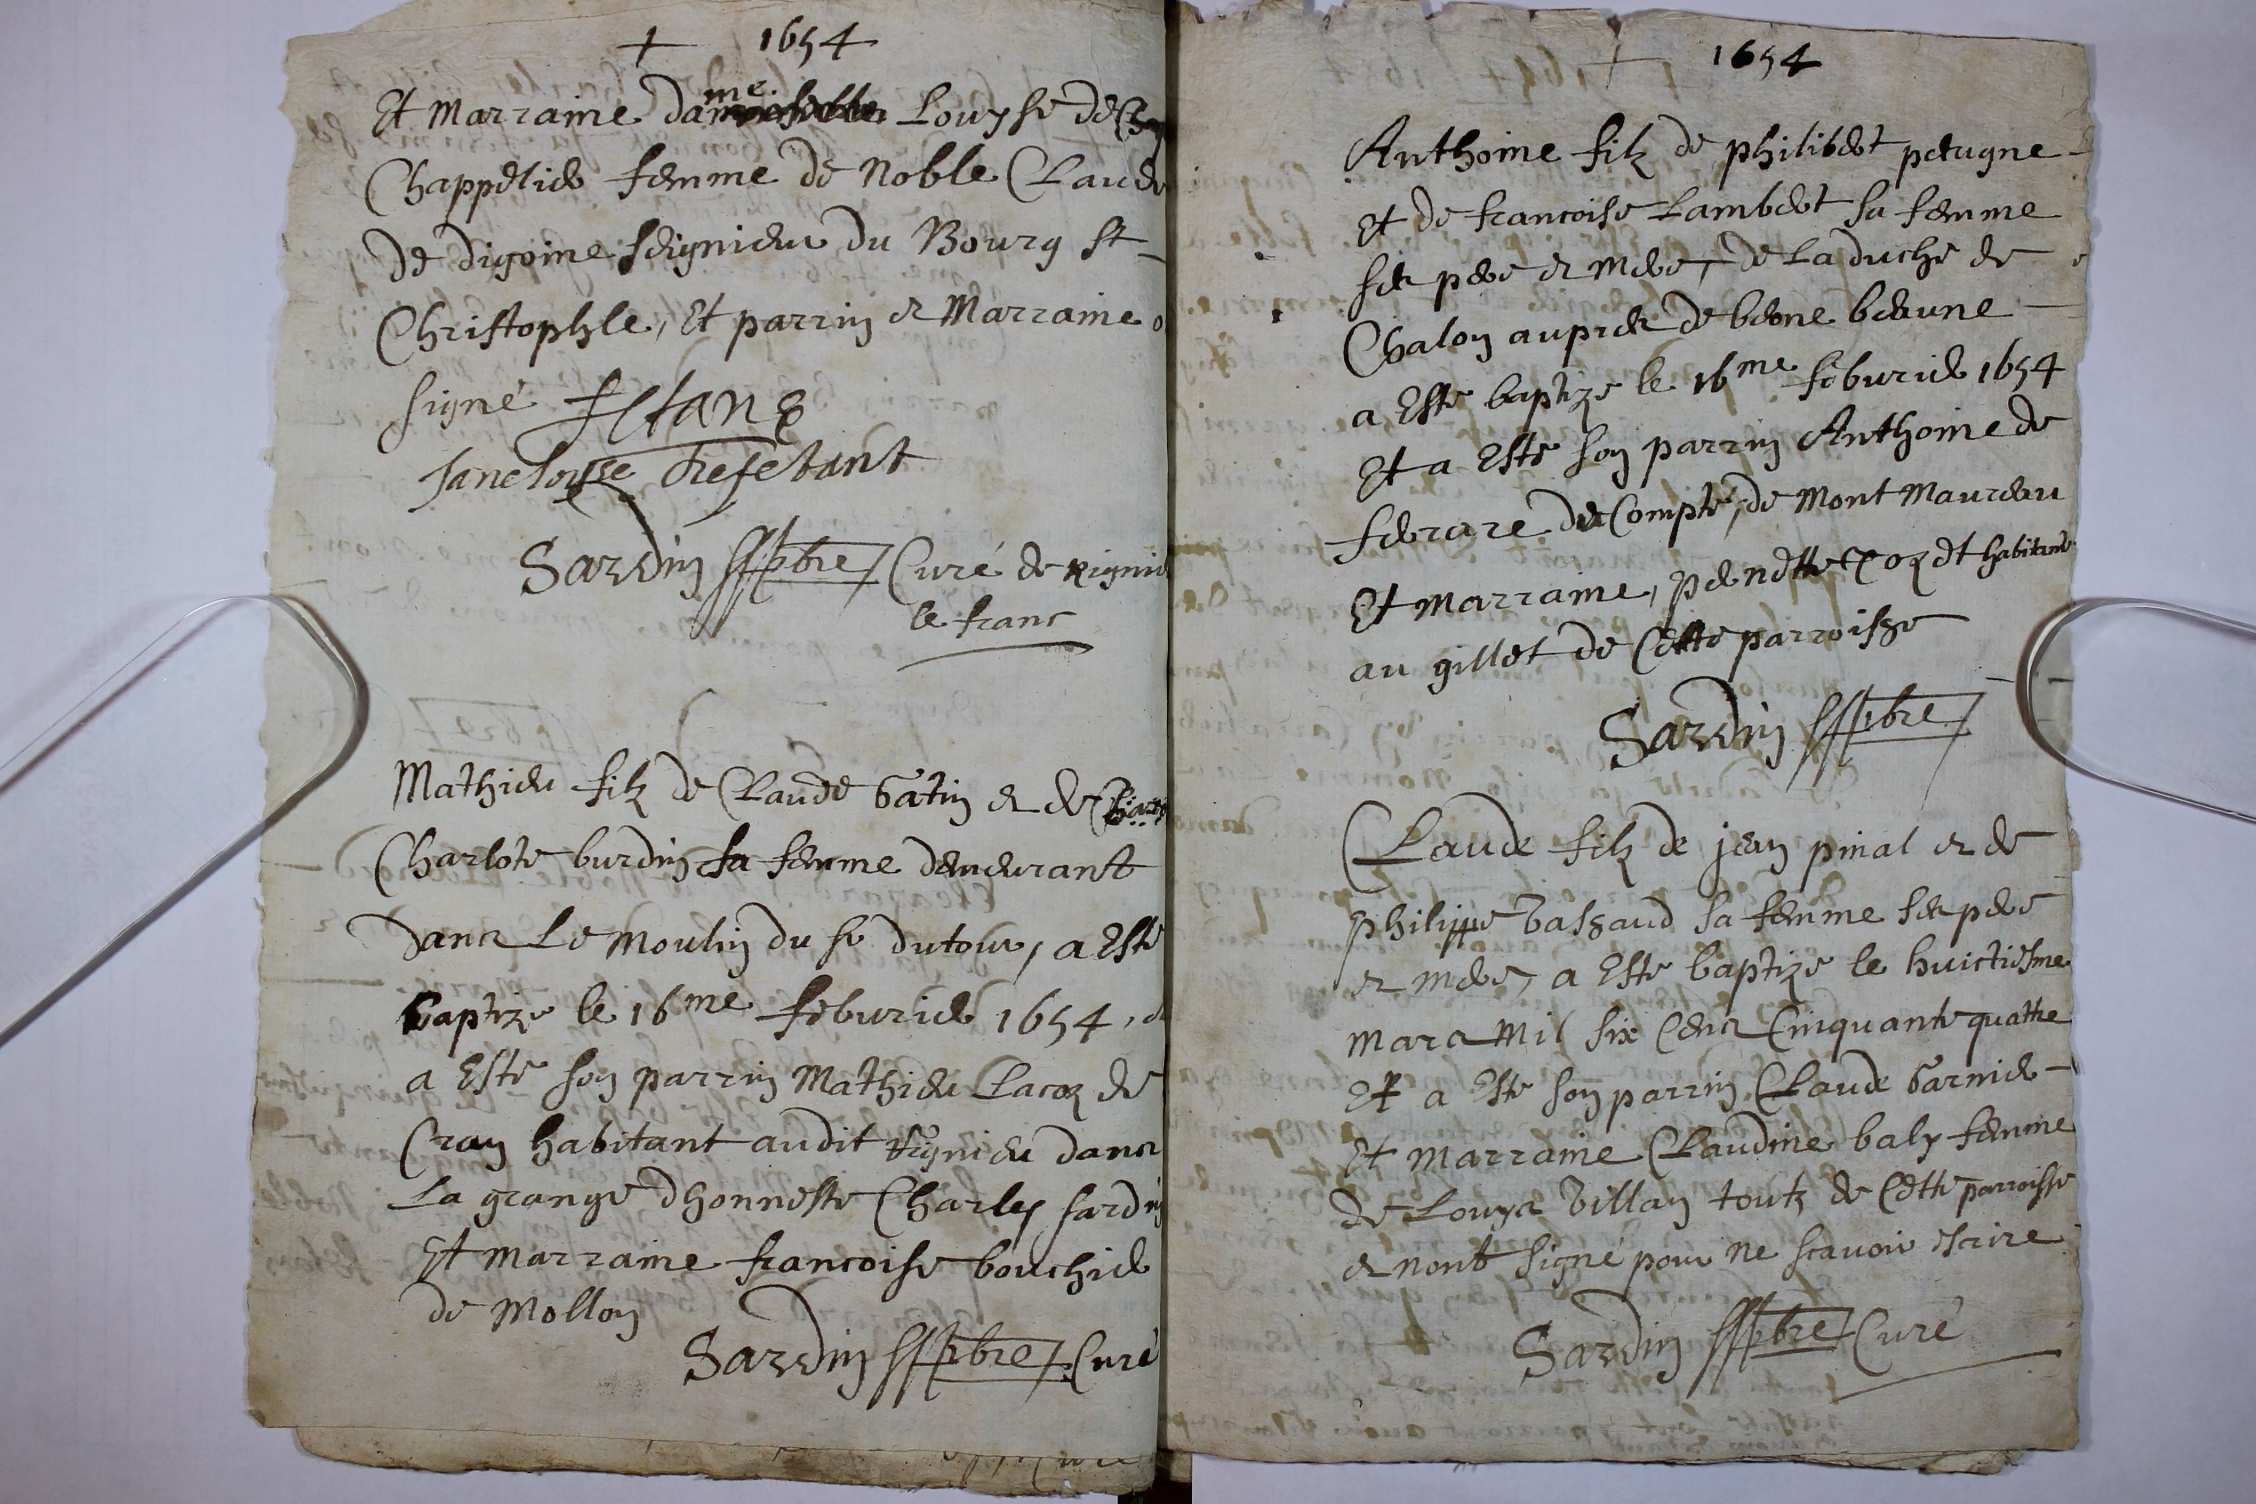 + 1654
Et marraine dame Louyse de
Chappelier femme de Noble Claude
de digoine seignieur du Bourg St
Christophle, Et parrin et Marraine
signé
Sardin pbre Curé de rignieu
le franc
Mathieu filz de Claude Gatin et de
Charlote burdin sa femme demeurant
dans Le moulin du sr dutour, a Esté
baptize le 16me feburier 1654, et
a Esté son parrin Mathieu Lacoz de
Cran habitant audit rignieu dans
La grange dhonneste Charles sardin
Et marraine francoise bouchier
de Mollon
Sardin pbre Curé
+ 1654
Anthoine filz de philibert perugne
Et de francoise Lambert sa femme
ses pere et mere, de La duché de
Chalon aupres de beone beaune
a Esté baptize le 16me feburier 1654
Et a Esté son parrin Anthoine de
ferrare des Compte, de Mont Maureau
Et marraine, pernette habitante
au gillet de Cette parroisse
Sardin pbre
Claude filz de jean pinal et de
philippe vassaud sa femme ses pere
et mere, a Esté baptize le huictiesme
mars Mil six Cens Cinquante quattre
Et a Esté son parrin Claude Garnier
Et marraine Claudine baly femme
de Louys villan toutz de Cette parroisse
et nont signé pour ne scavoir escrire
Sardin pbre Curé